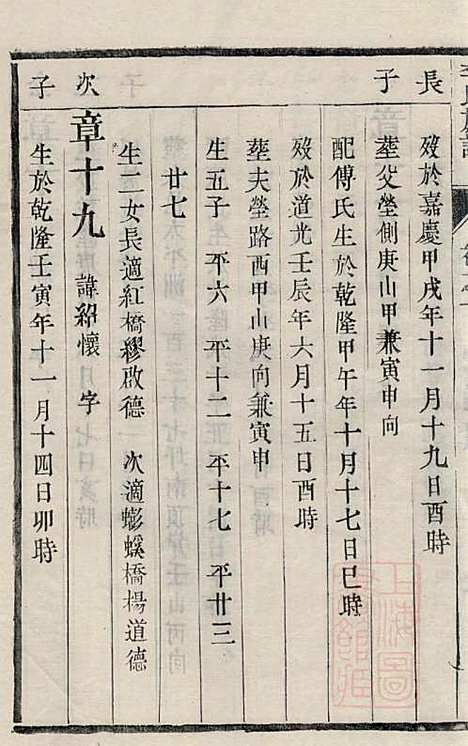 長子
歿於嘉慶甲戌年十一月十九日酉時
塟父塋側庚山甲兼寅申向
配傅氏生於乾隆甲午年十月十七日巳時
歿於道光壬辰年六月十五日酉時
塟夫塋路西甲山庚向兼寅申
生五子 平六 平十二 平十七 平廿三
廿七
生二女長適紅橋繆啟德 次適蟛蜞橋楊道德
次子
章十九 諱紹懷 字
生於乾隆壬寅年十一月十四日卯時
上海圖書館藏